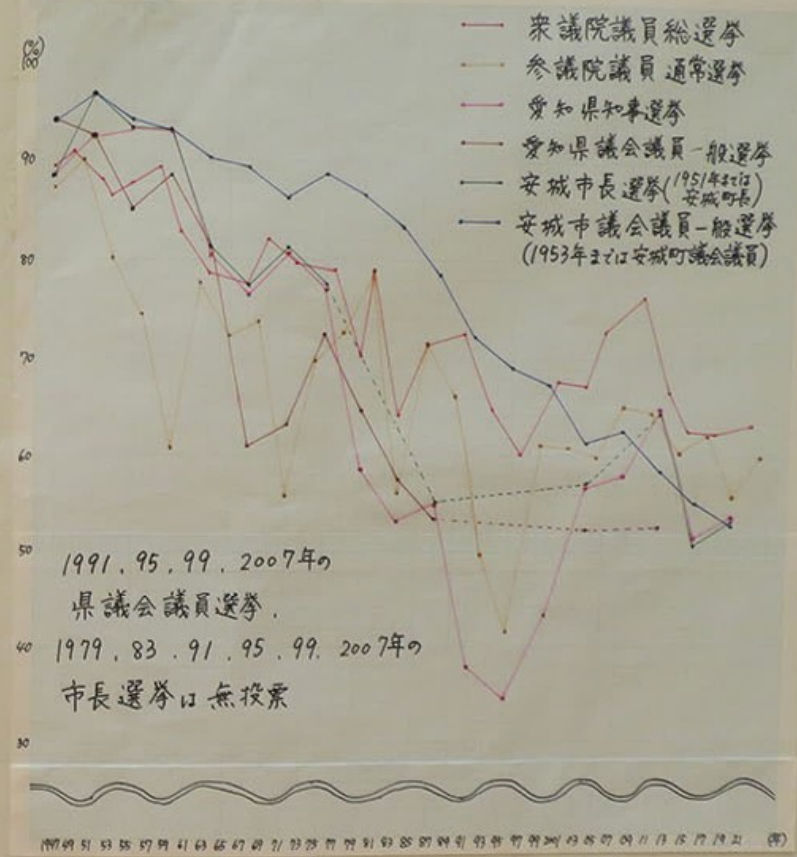 (%)
100
90
80
70
60
50
40
30
衆議院議員総選挙
参議院議員通常選挙
愛知県知事選挙
愛知県議会議員一般選挙
安城市長選挙(1951年までは安城町長)
安城市議会議員一般選挙
(1953年までは安城町議会議員)
1991、95、99、2007年の
県議会議員選挙、
1979、83、91、95、99、2007年の
市長選挙は無投票
1947 49 51 53 55 57 59 61 63 65 67 69 71 73 75 77 79 81 83 85 87 89 91 93 95 97 99 2001 03 05 07 09 11 13 15 17 19 21 (年)